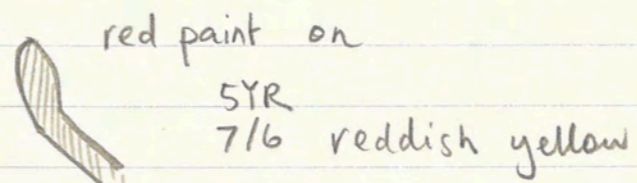 red paint on
5YR
7/6 reddish yellow